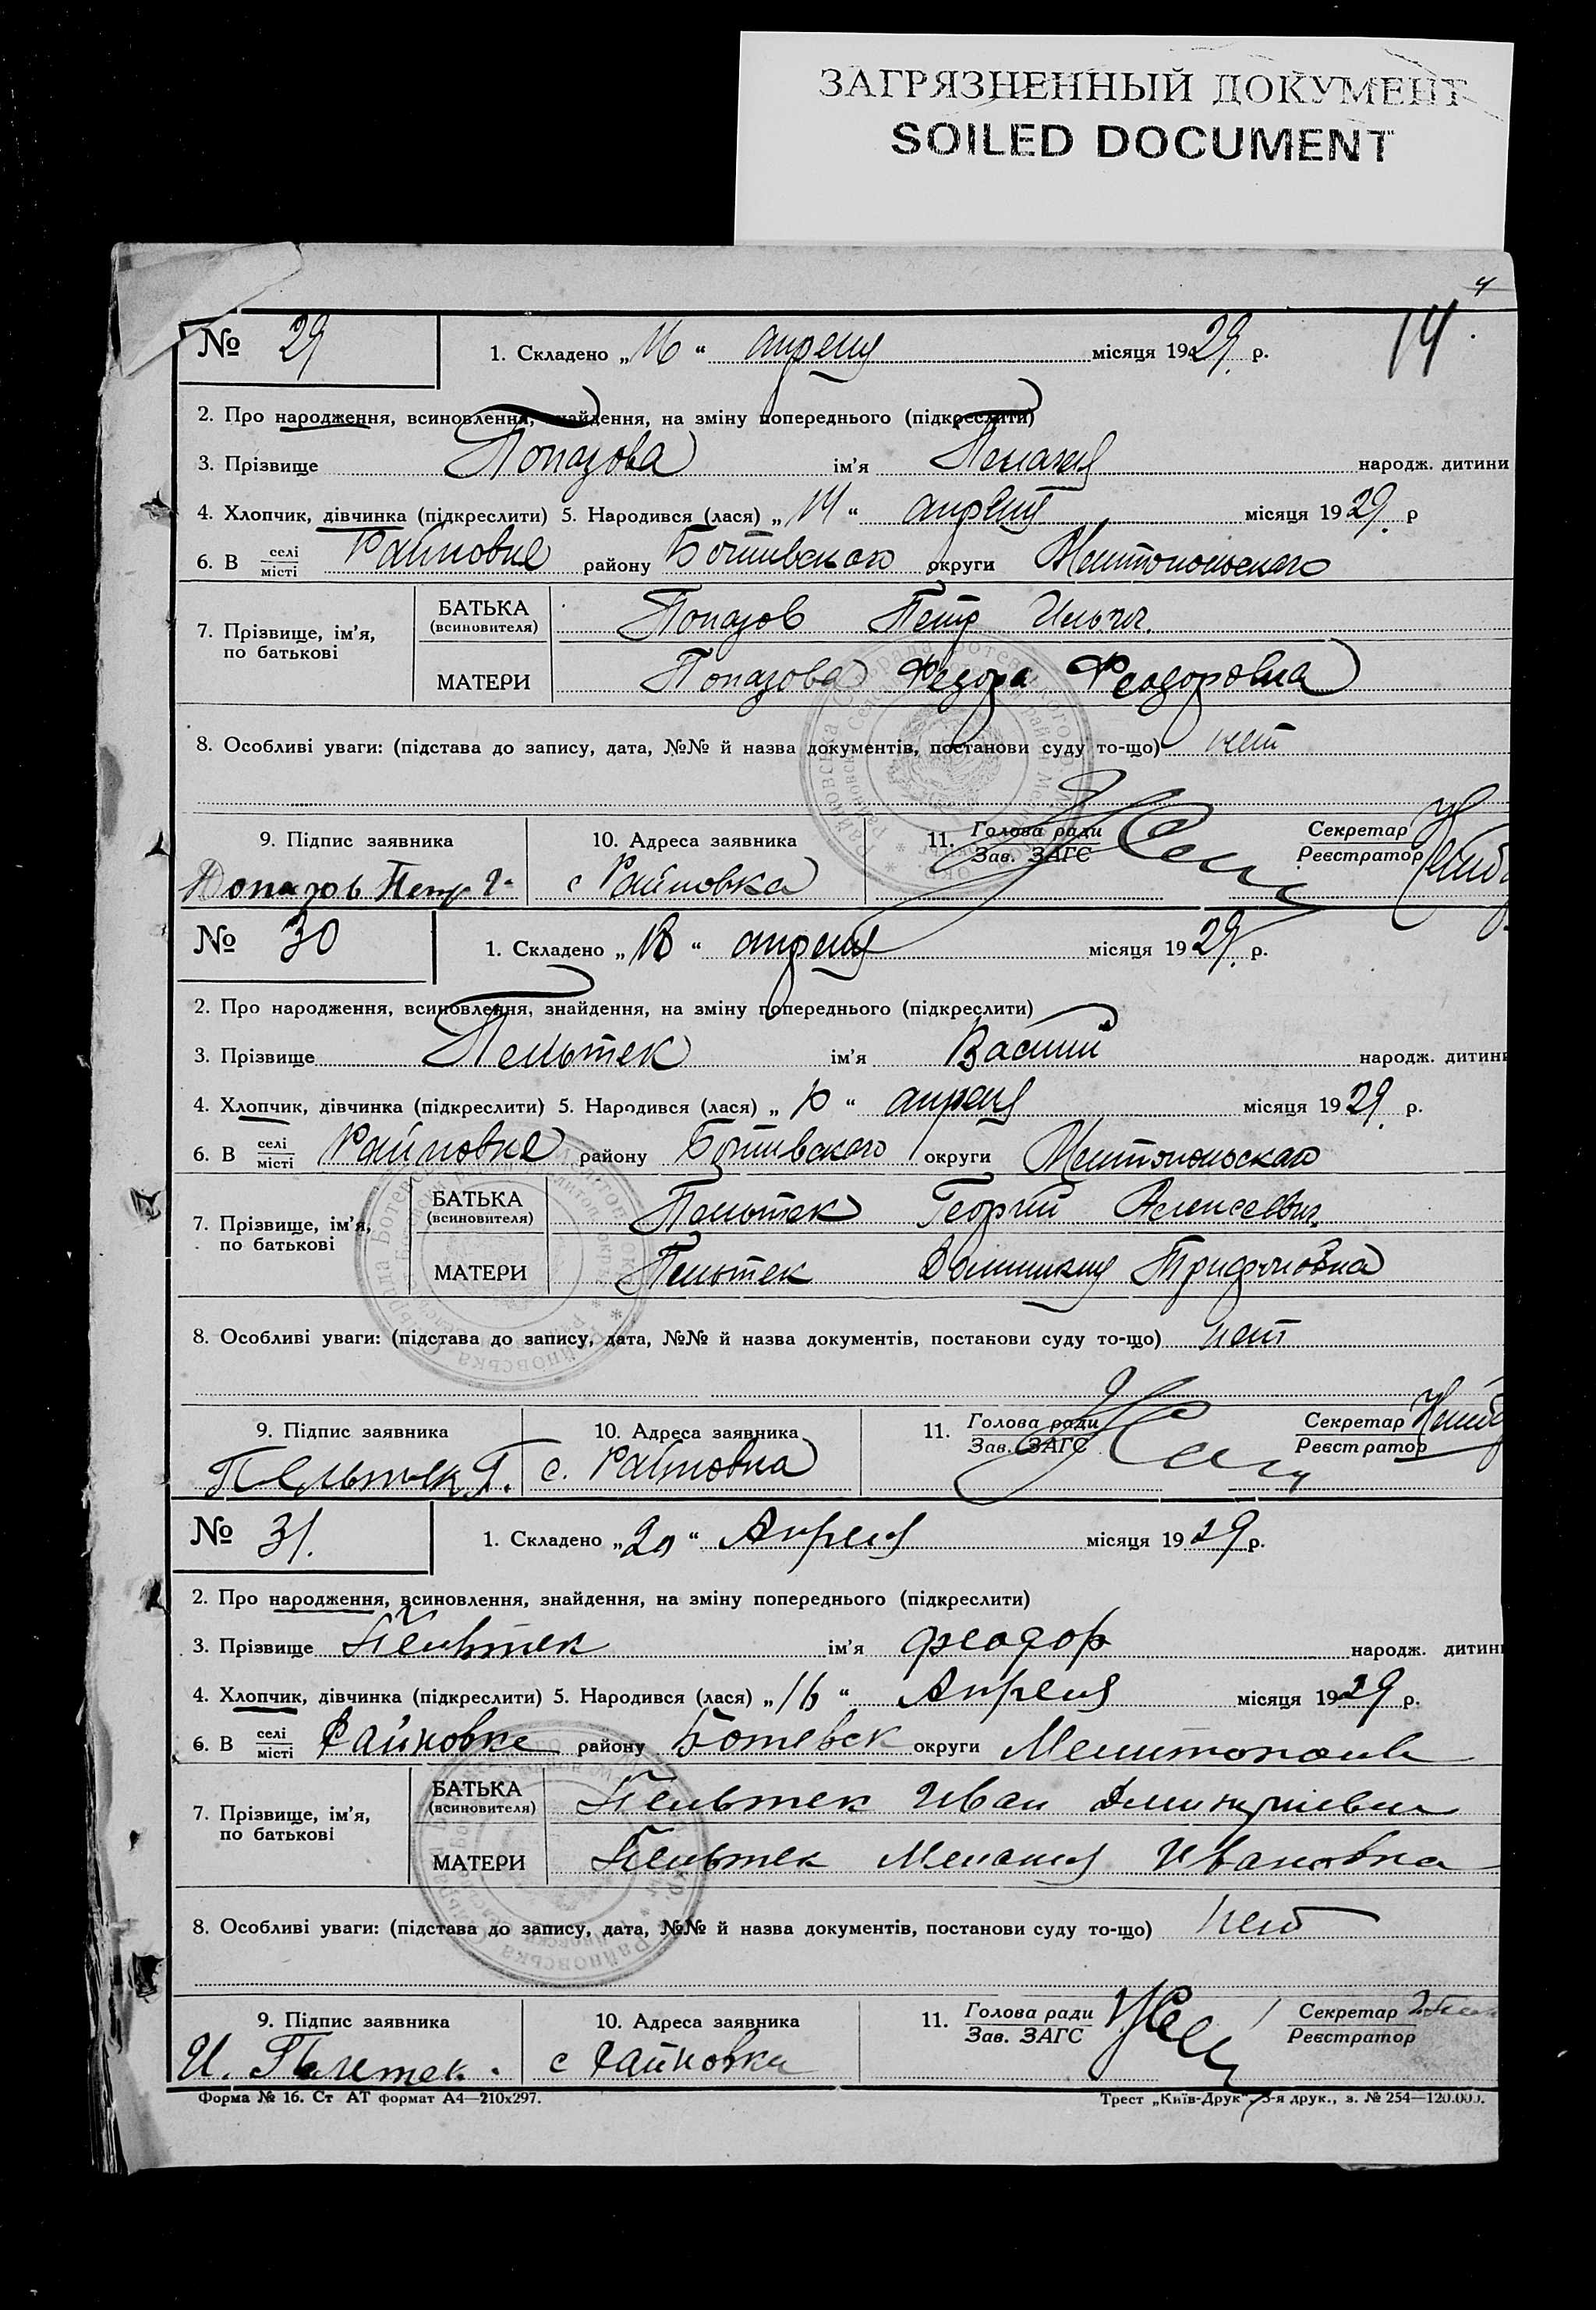 ЗАГРЯЗНЕННЫЙ ДОКУМЕНТ
SOILED DOCUMENT
4
14.
№ 29
1. Складено „16“ апреля місяця 1929. р.
2. Про народження, всиновлення, знайдення, на зміну попереднього (підкреслити)
3. Прізвище Попазова ім’я Пелагия народж. дитини
4. Хлопчик, дівчинка (підкреслити) 5. Народився (лася) „14“ апреля місяця 1929. р
6. В селі/місті Райновке району Ботивского округи Мелитопольского
7. Прізвище, ім’я, по батькові
БАТЬКА (всиновителя) Попазов Петр Ильич.
МАТЕРИ Попазова Федора Феодоровна
8. Особливі уваги: (підстава до запису, дата, №№ й назва документів, постанови суду то-що) нет
9. Підпис заявника
10. Адреса заявника
11. Голова ради/Зав. ЗАГС
Секретар/Реєстратор
Попазов Петр с Райновка
№ 30
1. Складено „18“ апреля місяця 1929. р.
2. Про народження, всиновлення, знайдення, на зміну попереднього (підкреслити)
3. Прізвище Пельтек ім’я Василий народж. дитини
4. Хлопчик, дівчинка (підкреслити) 5. Народився (лася) „ “ апреля місяця 1929. р.
6. В селі/місті Райновке району Ботивского округи Мелитопольского
7. Прізвище, ім’я, по батькові
БАТЬКА (всиновителя) Пельтек Георгий Алексеевич.
МАТЕРИ Пельтек Домникия Трифоновна
8. Особливі уваги: (підстава до запису, дата, №№ й назва документів, постанови суду то-що) нет
9. Підпис заявника
10. Адреса заявника
11. Голова ради/Зав. ЗАГС
Секретар/Реєстратор
Пельтек Г. с. Райновка
№ 31.
1. Складено „20“ Апреля місяця 1929 р.
2. Про народження, всиновлення, знайдення, на зміну попереднього (підкреслити)
3. Прізвище Пельтек ім’я Феодор народж. дитини
4. Хлопчик, дівчинка (підкреслити) 5. Народився (лася) „16“ Апреля місяця 1929 р.
6. В селі/місті Райновке району Ботевск округи
7. Прізвище, ім’я, по батькові
БАТЬКА (всиновителя) Пельтек Иван Дмитриевич
МАТЕРИ Пельтек Мелания Ивановна
8. Особливі уваги: (підстава до запису, дата, №№ й назва документів, постанови суду то-що) нет
9. Підпис заявника
10. Адреса заявника
11. Голова ради/Зав. ЗАГС
Секретар/Реєстратор
И. Пелтек. с Райновка
Форма № 16. Ст АТ формат А4—210х297.
Трест „Київ-Друк“, 3-я друк., з. № 254—120.000.